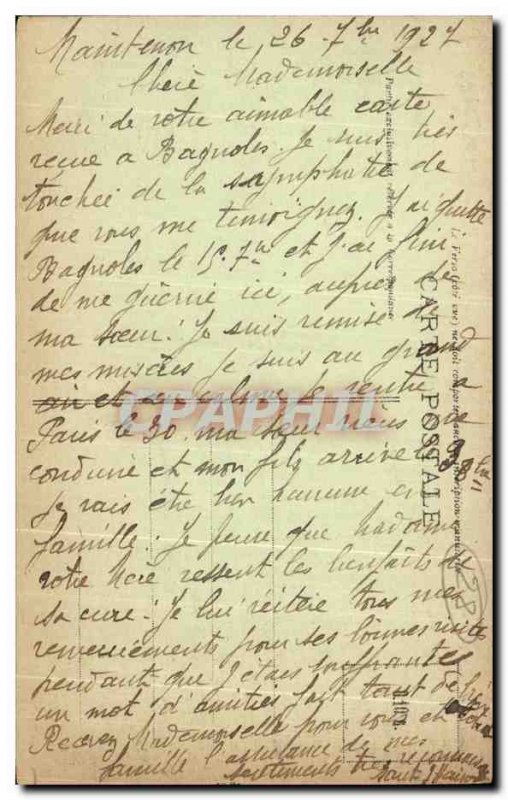 Maintenon le 26 7bre 1927
Chère Mademoiselle
Merci de votre aimable carte
reçue a Bagnoles. Je suis très
touchée de la symphatie
que vous me temoignez. J'ai quitté
Bagnoles le 15 7bre et j'ai fini
de me guérir ici, auprès de
ma sœur. Je suis remise de
mes misères je suis au grand
air et au calme Je rentre a
Paris le 30. ma sœur
et mon fils arrive le
Je vais être en
famille. Je pense que Madame
votre Mère ressent les bienfaits de
sa cure. Je lui réitère tous mes
remerciements pour ses bonnes visites
pendant que j'étais souffrante
un mot d'amitiés fait tant de bien
Recevez Mademoiselle pour vous et votre
famille l'assurance de mes
sentiments
CARTE POSTALE
128
CPAPHIL